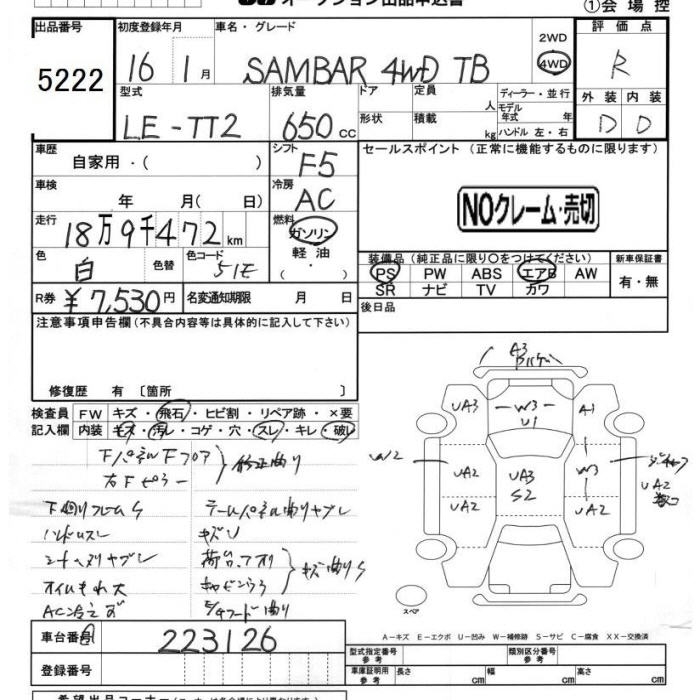 オークション出品申込書
①会場控
出品番号
5222
初度登録年月
16 1月
車名・グレード
SAMBAR 4WD TB
2WD
4WD
評価点
R
型式
LE-TT2
排気量
650cc
ドア
形状
定員
人
積載
kg
ディーラー・並行
モデル年式 年
ハンドル 左・右
外装 内装
D D
車歴
自家用・( )
シフト
F5
セールスポイント (正常に機能するものに限ります)
車検
年 月(日)
冷房
AC
NOクレーム・売切
走行
18万9千472km
燃料
ガソリン
軽油
色
白
色替
色コード
51E
装備品 (純正品に限り○をつけてください)
PS PW ABS エアB AW
SR ナビ TV カワ
新車保証書
有・無
R券 ¥7,530円
名変通知期限 月 日
後日品
注意事項申告欄 (不具合内容等は具体的に記入して下さい)
修復歴 有 〔箇所 〕
検査員記入欄
FW キズ・飛石・ヒビ割・リペア跡・×要
内装 キズ・汚レ・コゲ・穴・スレ・キレ・破レ
Fパネル Fフロア
右Fピラー
修正曲り
下回りフレームS
テールパネル曲りヤブレ
ハンドルスレ
キズU
シートヘタリヤブレ
オイルもれ大
キズ曲りS
AC冷えず
A3
UA3
W3
U1
A1
UA2
UA3
S2
W3
UA2
UA2
UA2
UA2
スペア
A−キズ E−エクボ U−凹み W−補修跡 S−サビ C−腐食 XX−交換済
車台番号
223126
型式指定番号
参考
類別区分番号
参考
登録番号
車庫証明用
参考
長さ cm
幅 cm
高さ cm
希望出品コーナー